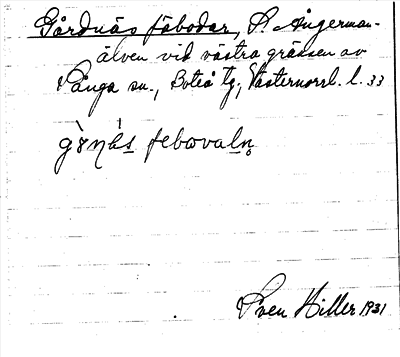 Gårdnäs fäbodar, S. Ångerman-
älven vid västra gränsen av
Långa sn., Boteå tg, Västernorrl. l. 33
febovaln
Sven Hiller 1931